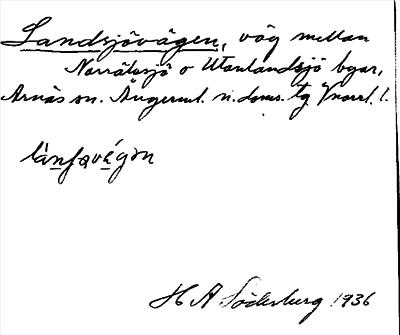 Landsjövägen, väg mellan
Norrätasjö o Utanlandsjö byar,
Arnäs sn. Ångerml. n. doms. tg Vnorrl. l.
H A Söderberg 1936